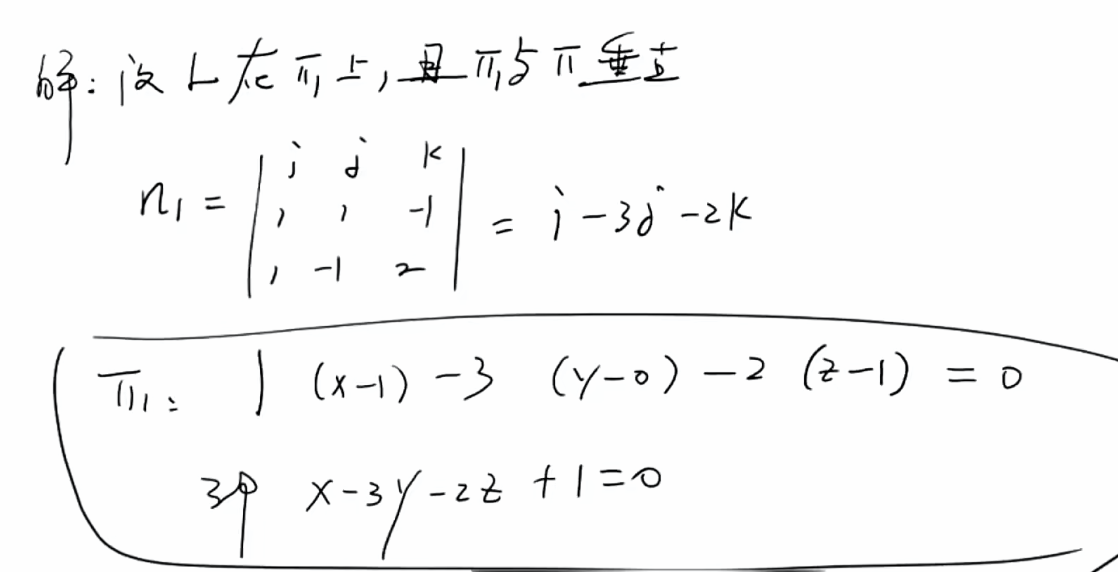 解：设L在π₁上，且π₁与π垂直
n₁ = | i j k | = i - 3j - 2k
| 1 1 -1 |
| 1 -1 2 |
π₁: 1 (x-1) - 3 (y-0) - 2 (z-1) = 0
即 x-3y-2z+1=0